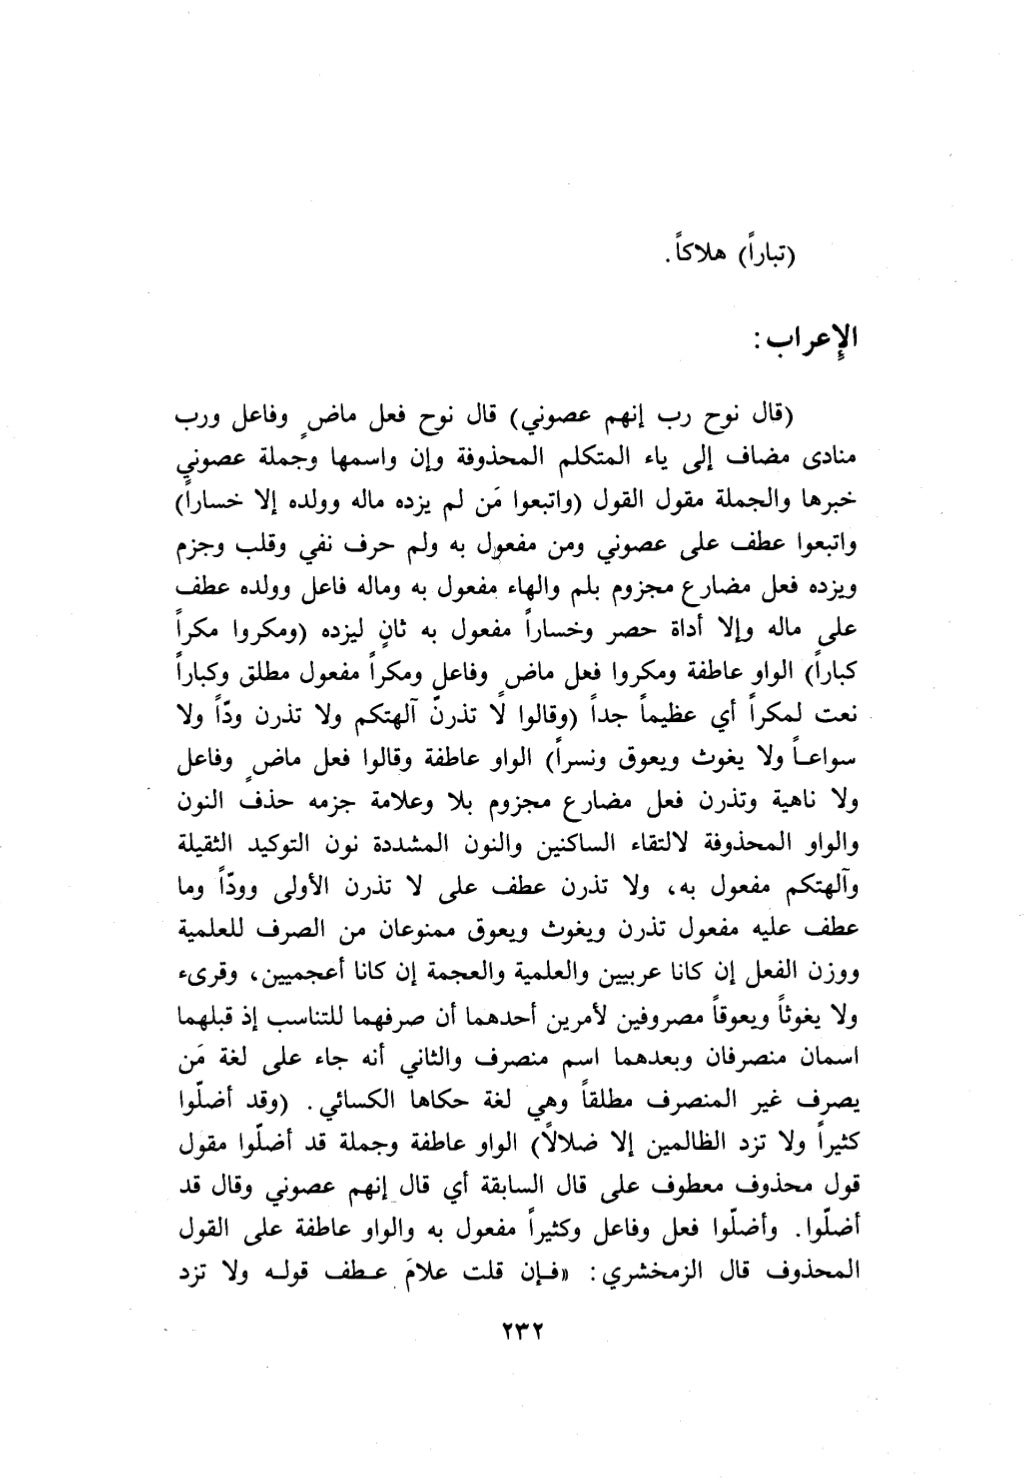 (تباراً) هلاكاً.
الإعراب:
(قال نوح رب إنهم عصوني) قال نوح فعل ماضٍ وفاعل ورب
منادى مضاف إلى ياء المتكلم المحذوفة وإن واسمها وجملة عصوني
خبرها والجملة مقول القول (واتبعوا مَن لم يزده ماله وولده إلا خساراً)
واتبعوا عطف على عصوني ومن مفعول به ولم حرف نفي وقلب وجزم
ويزده فعل مضارع مجزوم بلم والهاء مفعول به وماله فاعل وولده عطف
على ماله وإلا أداة حصر وخساراً مفعول به ثانٍ ليزده (ومكروا مكراً
كباراً) الواو عاطفة ومكروا فعل ماضٍ وفاعل ومكراً مفعول مطلق وكباراً
نعت لمكراً أي عظيماً جداً (وقالوا لا تذرنّ آلهتكم ولا تذرن ودّاً ولا
سواعاً ولا يغوث ويعوق ونسراً) الواو عاطفة وقالوا فعل ماضٍ وفاعل
ولا ناهية وتذرن فعل مضارع مجزوم بلا وعلامة جزمه حذف النون
والواو المحذوفة لالتقاء الساكنين والنون المشددة نون التوكيد الثقيلة
وآلهتكم مفعول به، ولا تذرن عطف على لا تذرن الأولى وودّاً وما
عطف عليه مفعول تذرن ويغوث ويعوق ممنوعان من الصرف للعلمية
ووزن الفعل إن كانا عربيين والعلمية والعجمة إن كانا أعجميين، وقرىء
ولا يغوثاً ويعوقاً مصروفين لأمرين أحدهما أن صرفهما للتناسب إذ قبلهما
اسمان منصرفان وبعدهما اسم منصرف والثاني أنه جاء على لغة مَن
يصرف غير المنصرف مطلقاً وهي لغة حكاها الكسائي. (وقد أضلّوا
كثيراً ولا تزد الظالمين إلا ضلالاً) الواو عاطفة وجملة قد أضلّوا مقول
قول محذوف معطوف على قال السابقة أي قال إنهم عصوني وقال قد
أضلّوا. وأضلّوا فعل وفاعل وكثيراً مفعول به والواو عاطفة على القول
المحذوف قال الزمخشري: «فإن قلت علامَ عطف قوله ولا تزد
٢٣٢